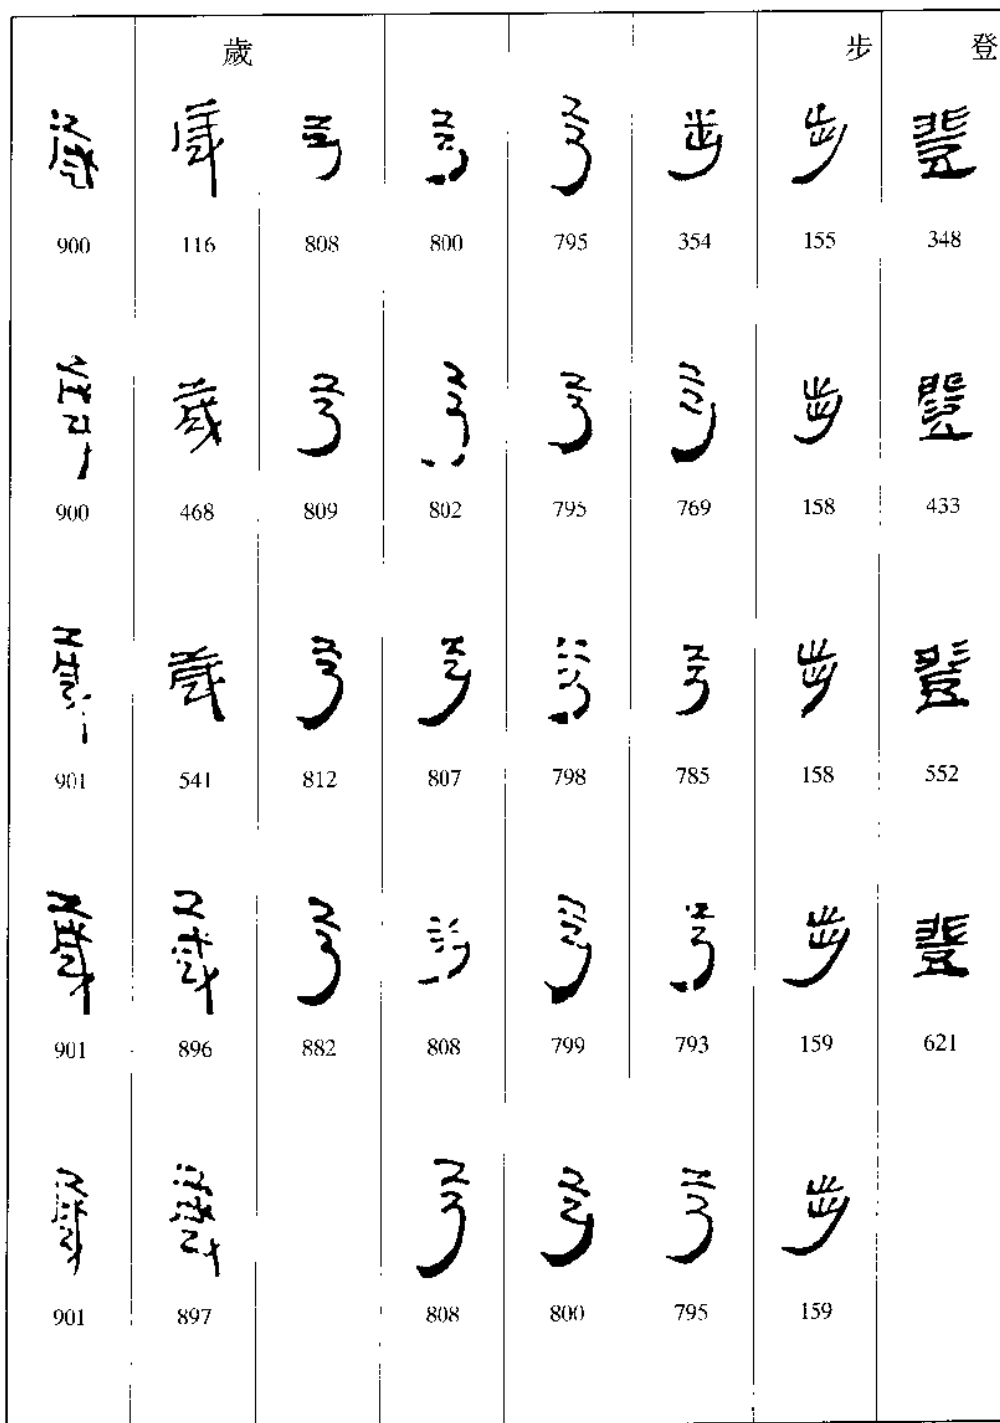 登 348 433 552 621
步 155 158 158 159 159
354 769 785 793 795
795 795 798 799 800
800 802 807 808 808
808 809 812 882
歲 116 468 541 896 897
900 900 901 901 901